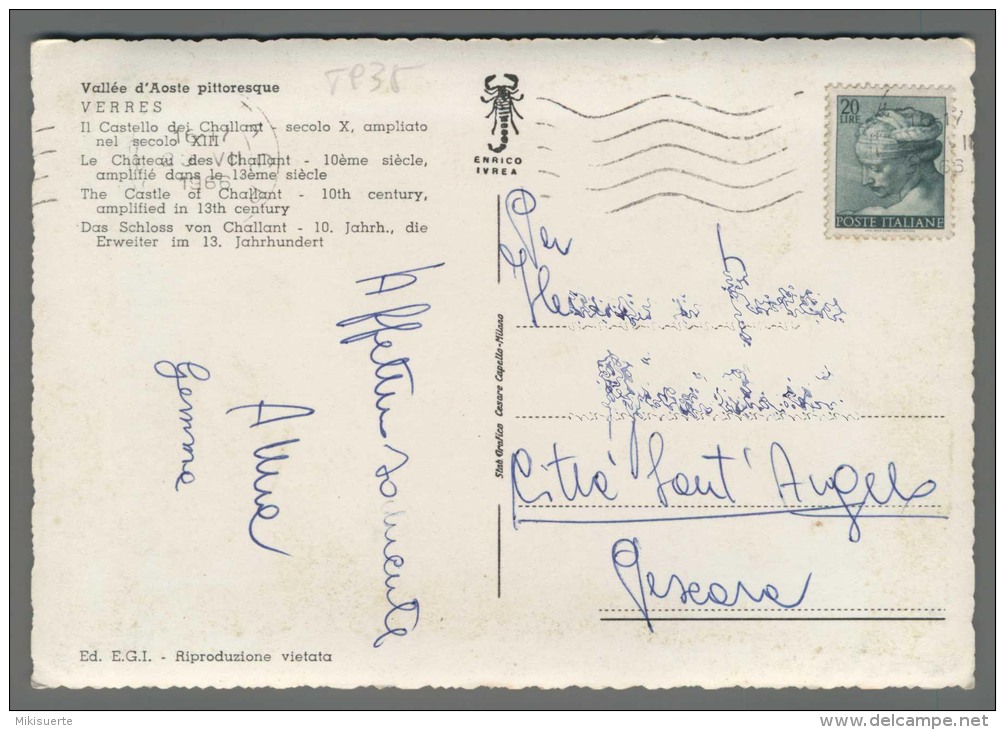 TP35
Vallée d'Aoste pittoresque
VERRES
Il Castello dei Challant - secolo X, ampliato
nel secolo XIII
Le Château des Challant - 10ème siècle,
amplifié dans le 13ème siècle
The Castle of Challant - 10th century,
amplified in 13th century
Das Schloss von Challant - 10. Jahrh., die
Erweiter im 13. Jahrhundert
16-17
1966
ENRICO
IVREA
20
LIRE
POSTE ITALIANE
Affettuosamente
Anna
Stab. Grafico Cesare Capello-Milano
Città Sant'Angelo
Pescara
Ed. E.G.I. - Riproduzione vietata
Mikisuerte
www.delcampe.net